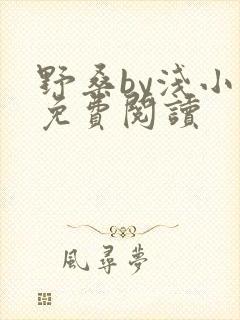 野桑by浅小
免費閱讀
風尋夢